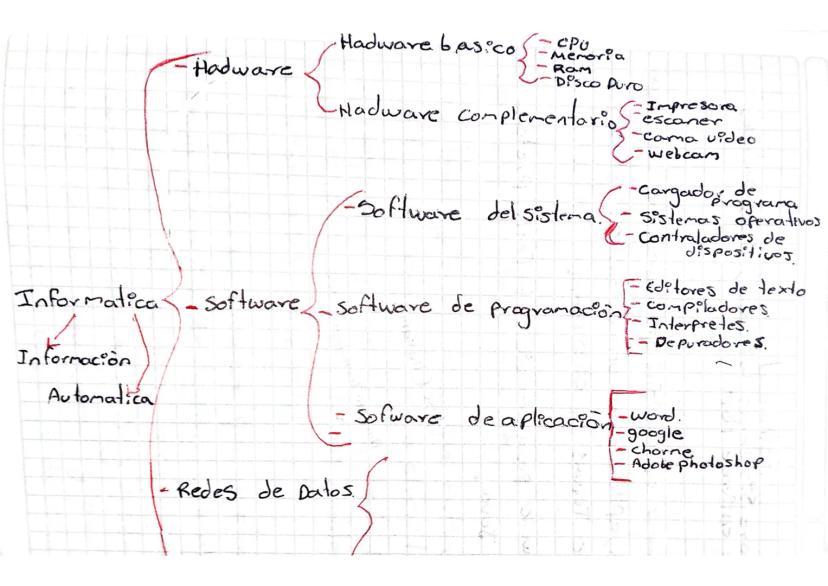 - Hadware
Hadware basico
- CPU
- Memoria
- Ram
- Disco Duro
Hadware complementario
- Impresora
- escaner
- cama video
- webcam
Informatica
Información
Automatica
- Software
- Software del sistema.
- Cargador de
programa
- sistemas operativos
- Contraladores de
dispositivos.
- Software de programación
- Editores de texto
- compiladores
- Interpretes.
- Depuradores.
- Sofware de aplicación
- word.
- google
- chorne
- Adobe photoshop
- Redes de Datos.